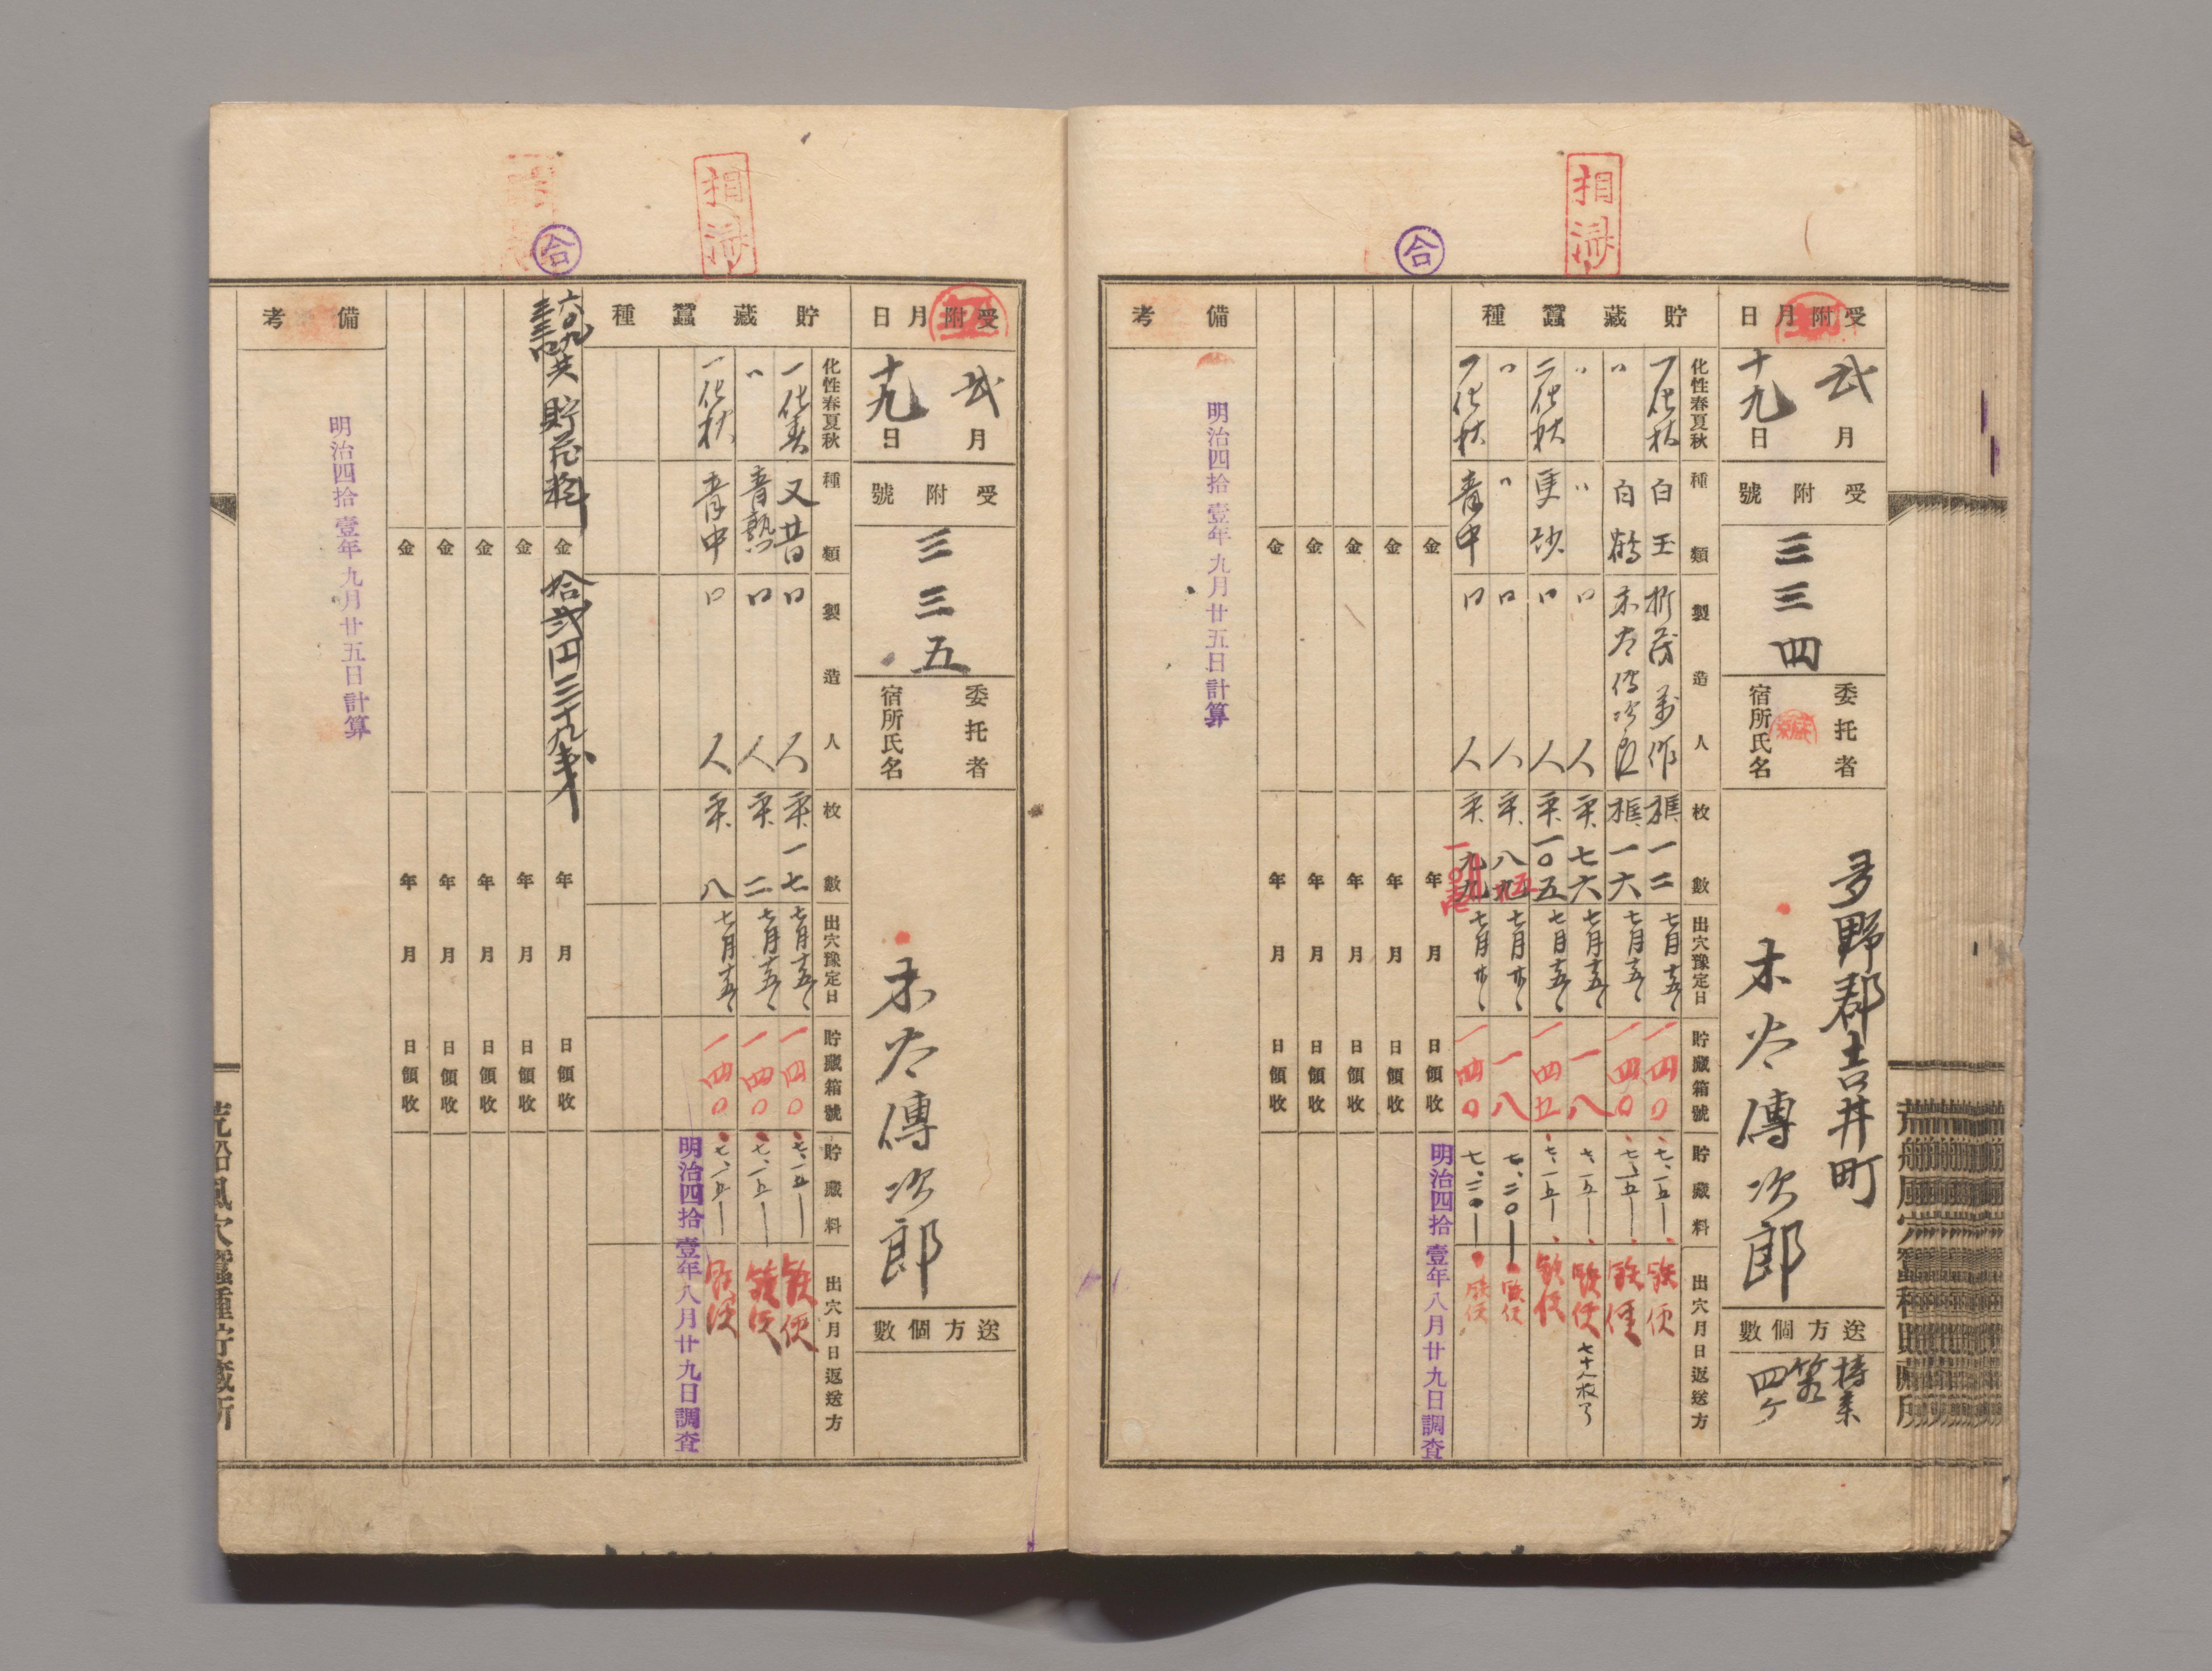 荒船風穴蠶種貯藏所
相済
合
受附月日
弐月
十九日
受附號
三三四
委托者
宿所氏名
多野郡吉井町
木大傳次郎
送方個數
持参
四ケ
貯藏蠶種
化性春夏秋
種類
製造人
枚數
出穴豫定日
貯藏箱號
貯藏料
出穴月日返送方
一化秋 白玉 一二 七月十五、 一四〇 七、一五
〃 白鶴 一六 七月十五、 一四〇 七、一五
〃 〃 口人 平 七六 七月十五、 一八 七、一五
二化秋 更砂 口人 平 一〇五 七月十五、 一四五 七、一五
〃 〃 口人 平 七月廿、 一八 七、二〇
一化秋 青中 口人 平 七月廿、 一四〇 七、二〇
明治四拾壹年八月廿九日調査
金 年 月 日領收
金 年 月 日領收
金 年 月 日領收
金 年 月 日領收
金 年 月 日領收
備考
明治四拾壹年九月廿五日計算
相済
合
受附月日
弐月
十九日
受附號
三三五
委托者
宿所氏名
木大傳次郎
送方個數
貯藏蠶種
化性春夏秋
種類
製造人
枚數
出穴豫定日
貯藏箱號
貯藏料
出穴月日返送方
一化春 又昔 口人 平 一七 七月十五、 一四〇 七、一五
〃 青熟 口人 平 二 七月十五、 一四〇 七、一五
一化秋 青中 口人 平 八 七月十五、 一四〇 七、一五
明治四拾壹年八月廿九日調査
共貯蔵料
金 拾弐円三十九銭 年 月 日領收
金 年 月 日領收
金 年 月 日領收
金 年 月 日領收
金 年 月 日領收
備考
明治四拾壹年九月廿五日計算
荒船風穴蠶種貯藏所